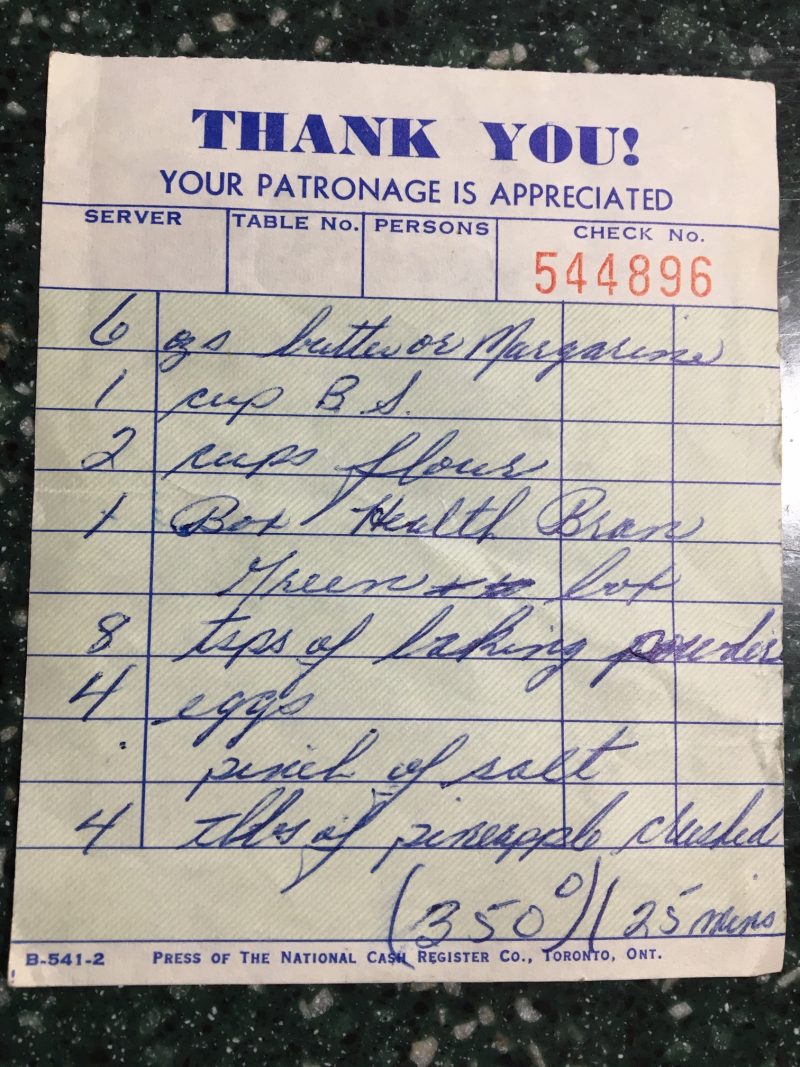 THANK YOU!
YOUR PATRONAGE IS APPRECIATED
SERVER TABLE No. PERSONS CHECK No.
544896
6 ozs butter or Margarine
1 cup B.S.
2 cups flour
1 Box Health Bran
Green box
8 tsps of baking powder
4 eggs
pinch of salt
4 tbls of pineapple crushed
(350°) (25 mins
B-541-2 PRESS OF THE NATIONAL CASH REGISTER CO., TORONTO, ONT.